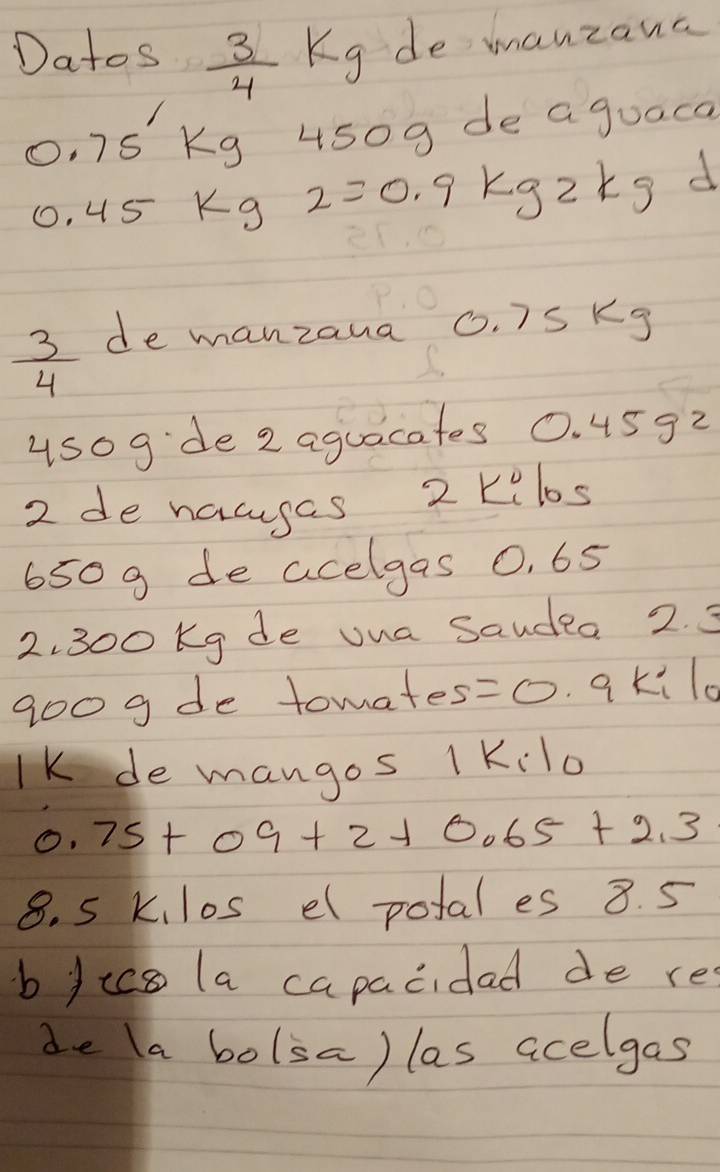 Datos 3/4 Kg de manzana
0.75 Kg 450g de aguaca
0.45 Kg 2=0.9 Kg 2 kg d
3/4 de manzana 0.75 Kg
450g de 2 aguacates 0.45 g 2
2 de 2 Kilos
650 g de acelgas 0.65
2.300 Kg de una Saudea 2.3
900 g de tomates=0.9 Kilo
1K de mangos 1 Kilo
0.75+ 09+2+ 0.65 + 2.3
8.5 Kilos el potal es 8.5
b) la capacidad de res
de la bolsa) las acelgas